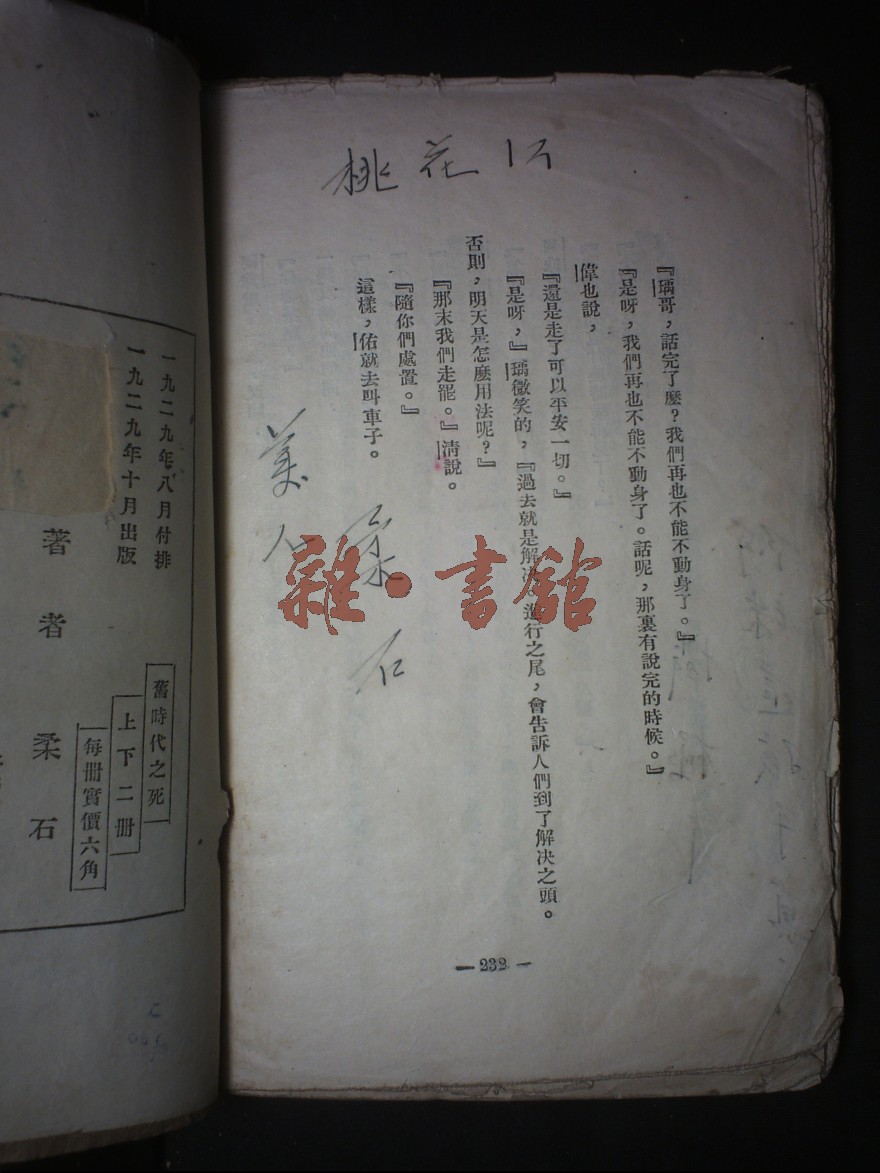 桃花
『瑀哥，話完了麽？我們再也不能不動身了。』
『是呀，我們再也不能不動身了。話呢，那裏有說完的時候。』
偉也說，
『還是走了可以平安一切。』
『是呀，』瑀微笑的，『過去就是解決，進行之尾，會告訴人們到了解決之頭。
否則，明天是怎麽用法呢？』
『那末我們走罷。』清說。
『隨你們處置。』
這樣，佑就去叫車子。
柔石
美人
雜·書館
— 232 —
舊時代之死
上下二册
每册實價六角
一九二九年八月付排
一九二九年十月出版
著者 柔石